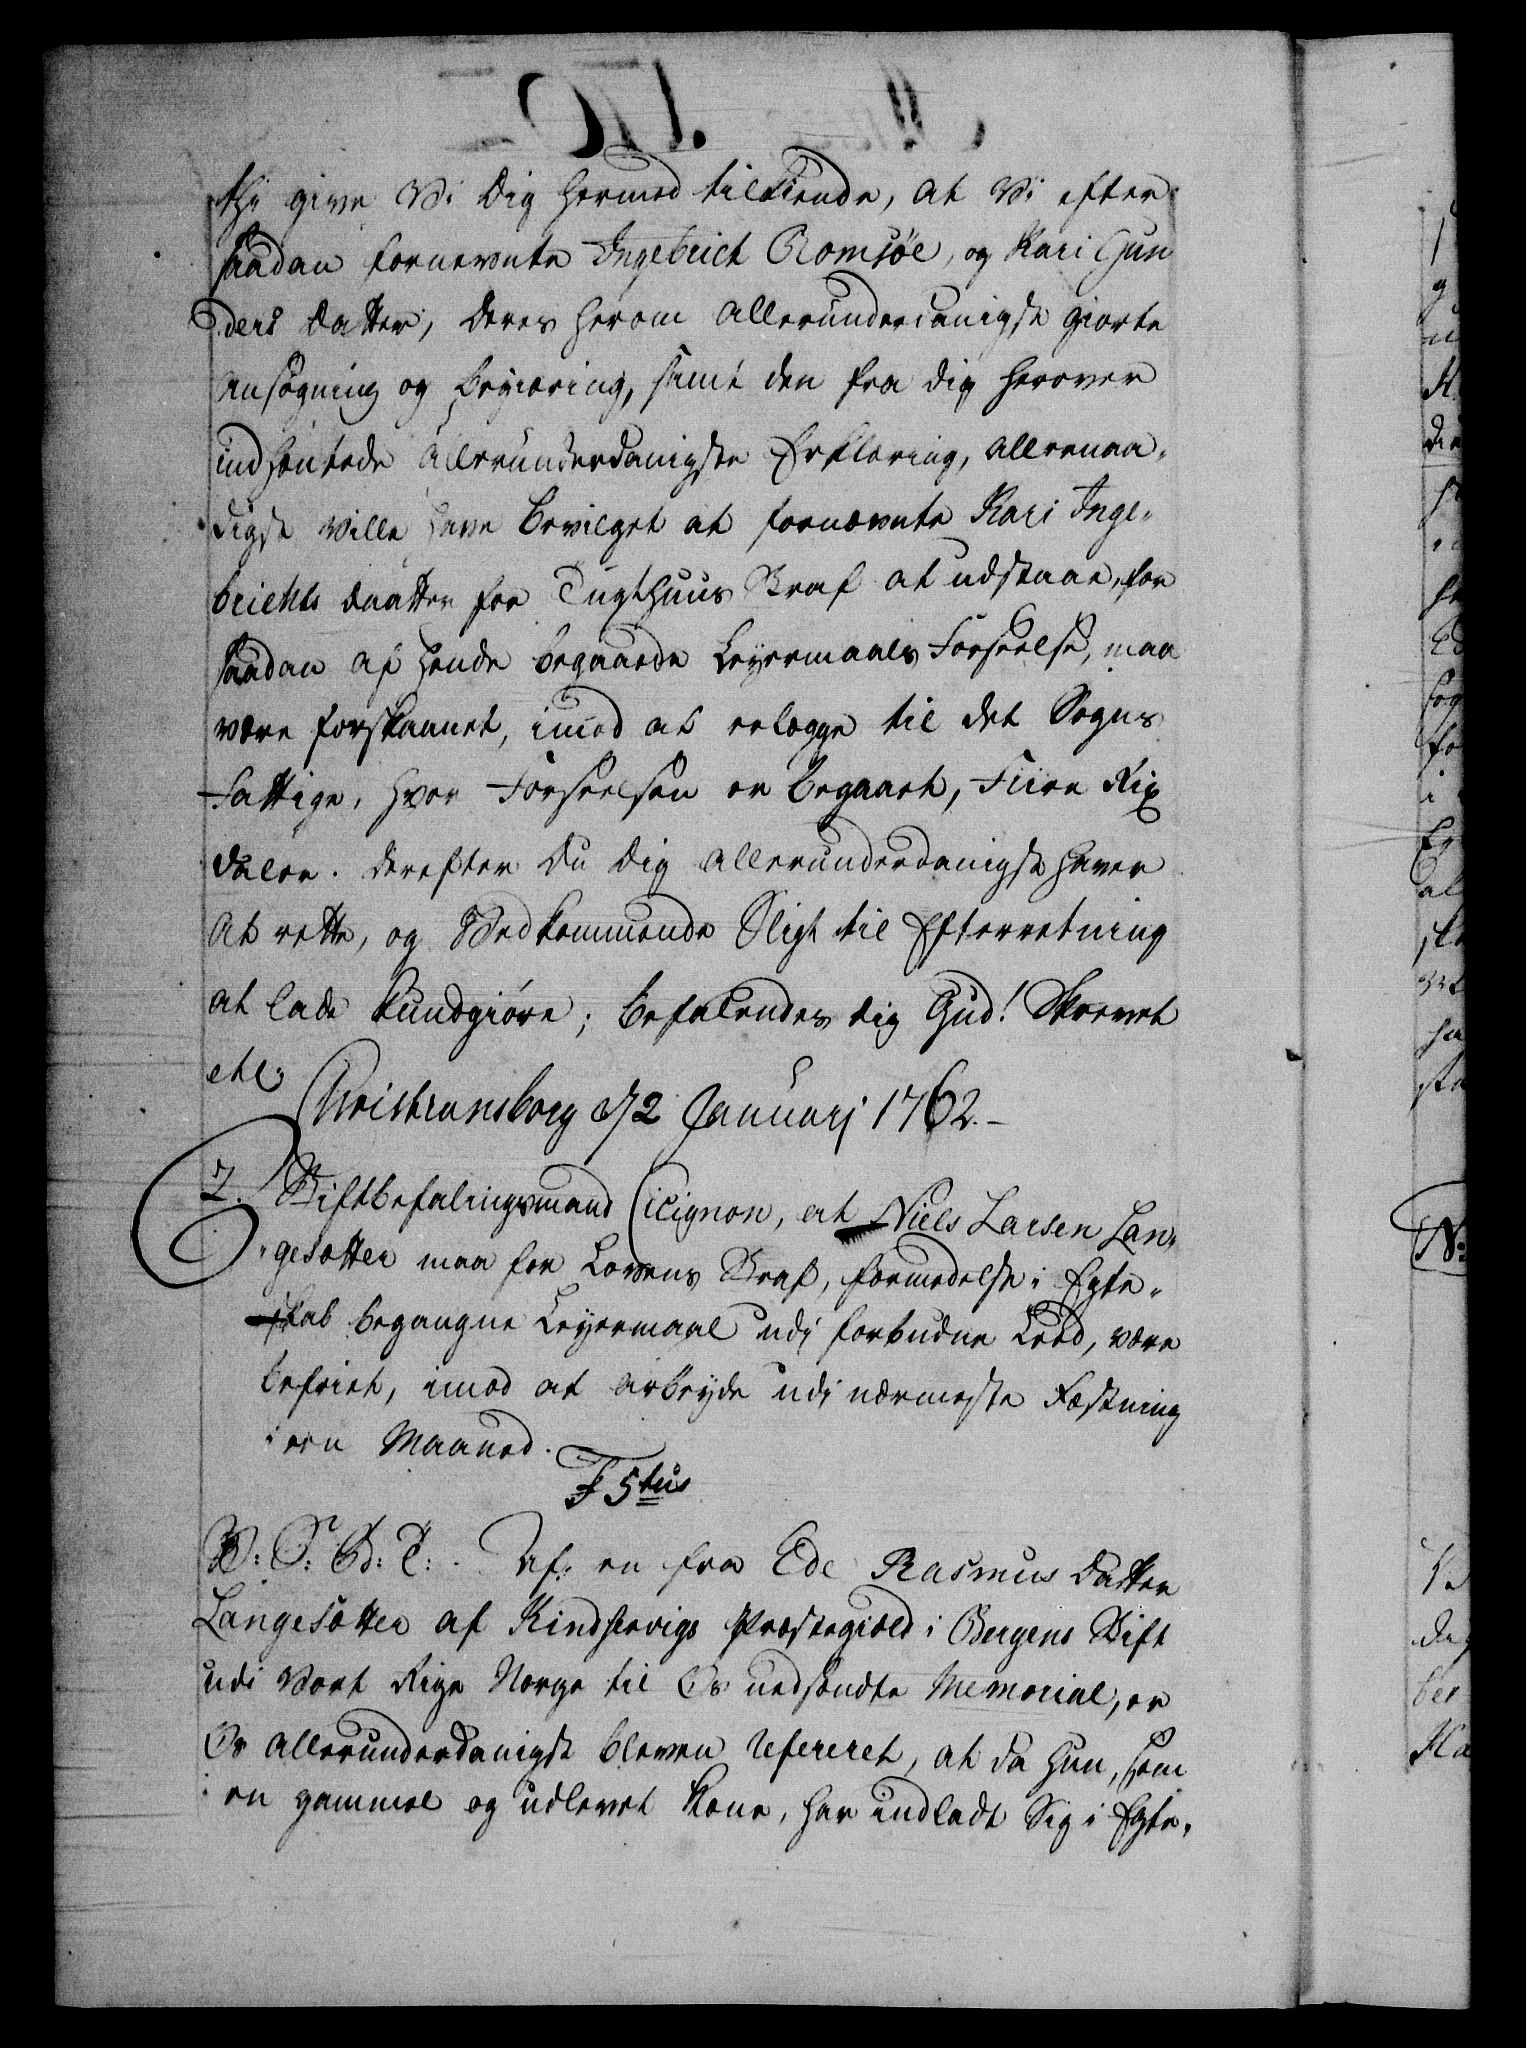 thi give Vi Dig hermed tilkiende, at Vi efter
saadan fornevnte Ingebrict Romsøe, og Kari Gun
ders Datter, deres herom allerunderdanigst giorte
Ansøgning og begiæring, samt den fra dig herover
indhentede allerunderdanigste Erklæring, allernaa„
digst ville have bevilget at fornævnte Kari Inge„
brichts daatter for Tugthuus Straf at udstaae, for
saadan af hende begaaede Leyermaals Forseelse, maa
være forskaanet, imod at erlægge til det Sogns
Fattige, hvor Forseelsen er begaaet, Fiire Rix
daler. derefter du dig allerunderdanigst haver
at rette, og Vedkommende Sligt til Efterretning
at lade kundgiøre; befalendes dig Gud! Skrevet
etc.
Christiansborg d 2 Januarj 1762.
2. Stiftbefalingsmand Cicignon, at Niels Larsen Lan„
„gesætter maa for Lovens Straf, formedelst i Egte„
skab begangne Leyermaal udj forbudne Leed, være
befriet, imod at arbeyde udj nærmeste Fæstning
i een Maaned.
F 5tus
W: S: G: T: Af en fra Ede Rasmus datter
Langesætter af Kindservigs Præstegield i Bergens Stift
udi Vort Rige Norge til Os nedsendte Memorial, er
Os allerunderdanigst bleven refereret, at da hun, som
en gammel og udlevet Kone, har indladt Sig i Egte„